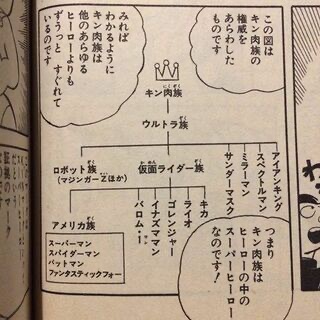 この図は
キン肉族の
権威を
あらわした
ものです
みれば
わかるように
キン肉族は
他のあらゆる
ヒーローよりも
ずうっと すぐれて
いるのです
キン肉族
ウルトラ族
アイアンキング
スペクトルマン
ミラーマン
サンダーマスク
仮面ライダー族
ロボット族
(マジンガーZほか)
キカ
ライオ
ゴレンジャー
イナズマン
バロム1
アメリカ族
スーパーマン
スパイダーマン
バットマン
ファンタスティックフォー
つまり
キン肉族は
ヒーローの中の
スーパーヒーロー
なのです!